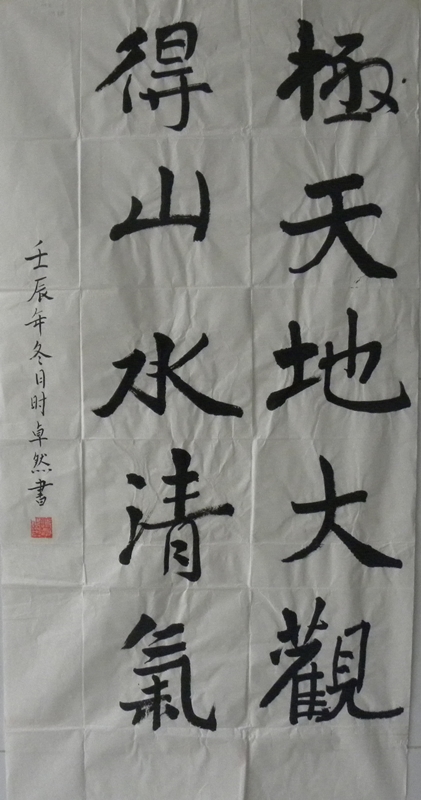 極天地大觀
得山水清氣
壬辰年冬月时卓然書